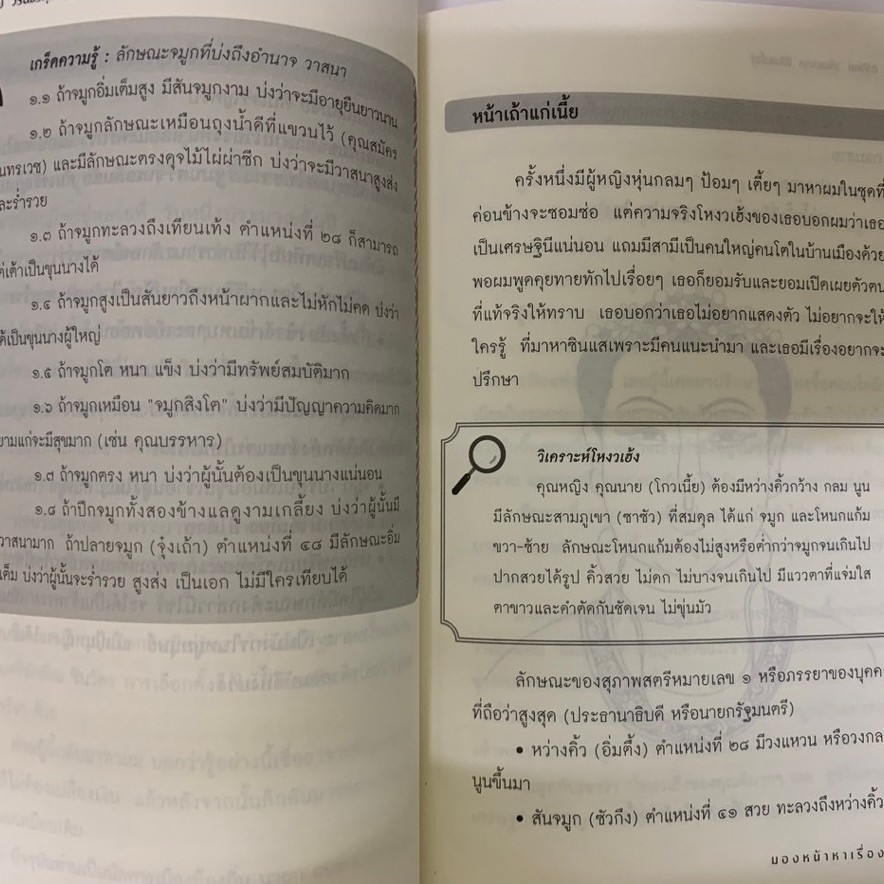 เกร็ดความรู้ : ลักษณะจมูกที่บ่งถึงอำนาจ วาสนา
๑.๑ ถ้าจมูกอิ่มเต็มสูง มีสันจมูกงาม บ่งว่าจะมีอายุยืนยาวนาน
๑.๒ ถ้าจมูกลักษณะเหมือนถุงน้ำดีที่แขวนไว้ (คุณสมัคร
นทรเวช) และมีลักษณะตรงดุจไม้ไผ่ผ่าซีก บ่งว่าจะมีวาสนาสูงส่ง
ละร่ำรวย
๑.๓ ถ้าจมูกทะลวงถึงเทียนเท้ง ตำแหน่งที่ ๒๘ ก็สามารถ
ต่เต้าเป็นขุนนางได้
๑.๔ ถ้าจมูกสูงเป็นสันยาวถึงหน้าผากและไม่หักไม่คด บ่งว่า
ด้เป็นขุนนางผู้ใหญ่
๑.๕ ถ้าจมูกโต หนา แข็ง บ่งว่ามีทรัพย์สมบัติมาก
๑.๖ ถ้าจมูกเหมือน "จมูกสิงโต" บ่งว่ามีปัญญาความคิดมาก
ยามแก่จะมีสุขมาก (เช่น คุณบรรหาร)
๑.๗ ถ้าจมูกตรง หนา บ่งว่าผู้นั้นต้องเป็นขุนนางแน่นอน
๑.๘ ถ้าปีกจมูกทั้งสองข้างแลดูงามเกลี้ยง บ่งว่าผู้นั้นมี
วาสนามาก ถ้าปลายจมูก (จุ๋งเถ้า) ตำแหน่งที่ ๔๘ มีลักษณะอิ่ม
เต็ม บ่งว่าผู้นั้นจะร่ำรวย สูงส่ง เป็นเอก ไม่มีใครเทียบได้
หน้าเถ้าแก่เนี้ย
ครั้งหนึ่งมีผู้หญิงหุ่นกลมๆ ป้อมๆ เตี้ยๆ มาหาผมในชุดที่
ค่อนข้างจะซอมซ่อ แต่ความจริงโหงวเฮ้งของเธอบอกผมว่าเธอ
เป็นเศรษฐินีแน่นอน แถมมีสามีเป็นคนใหญ่คนโตในบ้านเมืองด้วย
พอผมพูดคุยทายทักไปเรื่อยๆ เธอก็ยอมรับและยอมเปิดเผยตัวตน
ที่แท้จริงให้ทราบ เธอบอกว่าเธอไม่อยากแสดงตัว ไม่อยากจะให้
ใครรู้ ที่มาหาซินแสเพราะมีคนแนะนำมา และเธอมีเรื่องอยากจะ
ปรึกษา
วิเคราะห์โหงวเฮ้ง
คุณหญิง คุณนาย (โกวเนี้ย) ต้องมีหว่างคิ้วกว้าง กลม นูน
มีลักษณะสามภูเขา (ซาซัว) ที่สมดุล ได้แก่ จมูก และโหนกแก้ม
ขวา-ซ้าย ลักษณะโหนกแก้มต้องไม่สูงหรือต่ำกว่าจมูกจนเกินไป
ปากสวยได้รูป คิ้วสวย ไม่ดก ไม่บางจนเกินไป มีแววตาที่แจ่มใส
ตาขาวและดำตัดกันชัดเจน ไม่ขุ่นมัว
ลักษณะของสุภาพสตรีหมายเลข ๑ หรือภรรยาของบุคค
ที่ถือว่าสูงสุด (ประธานาธิบดี หรือนายกรัฐมนตรี)
• หว่างคิ้ว (อิ่มตึ้ง) ตำแหน่งที่ ๒๘ มีวงแหวน หรือวงกล
นูนขึ้นมา
• สันจมูก (ซัวกึง) ตำแหน่งที่ ๔๑ สวย ทะลวงถึงหว่างคิ้ว
มองหน้าหาเรื่อง